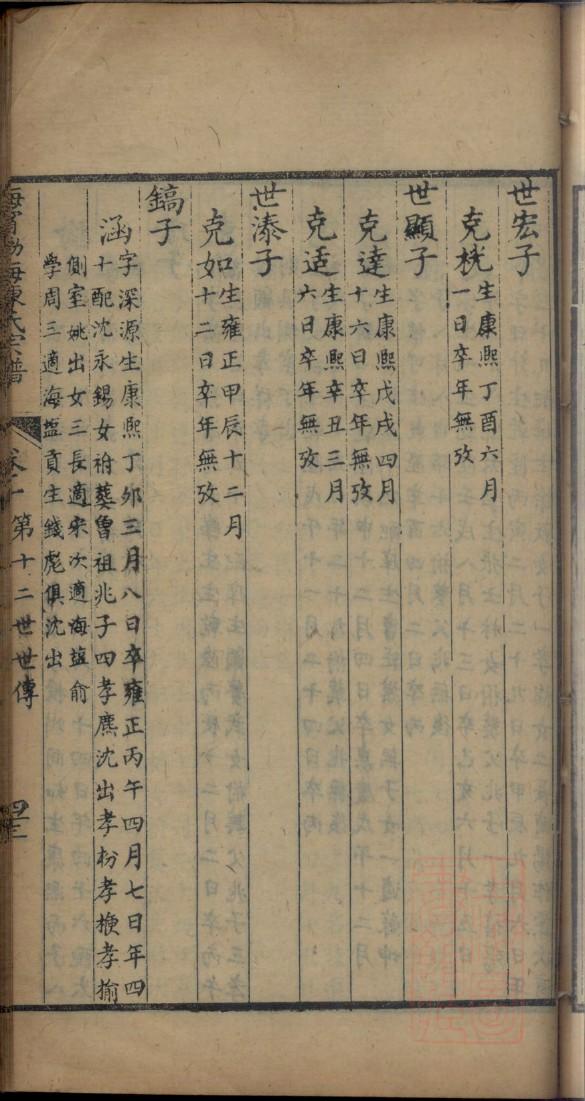 世宏子
克桄生康熙丁酉六月
一日卒年無攷
世顯子
克達生康熙戊戌四月
十六日卒年無攷
克适生康熙辛丑三月
六日卒年無攷
世溙子
克如生雍正甲辰十二月
十二日卒年無攷
鎬子
涵字深源生康熙丁卯三月八日卒雍正丙午四月七日年四
十配沈永錫女祔葬曾祖兆子四孝麃沈出孝枌孝楩孝揄
側室姚出女三長適宋次適海鹽俞
學周三適海盬貢生錢彪俱沈出
海寧渤海陳氏宗譜
第十二世世傳
四三